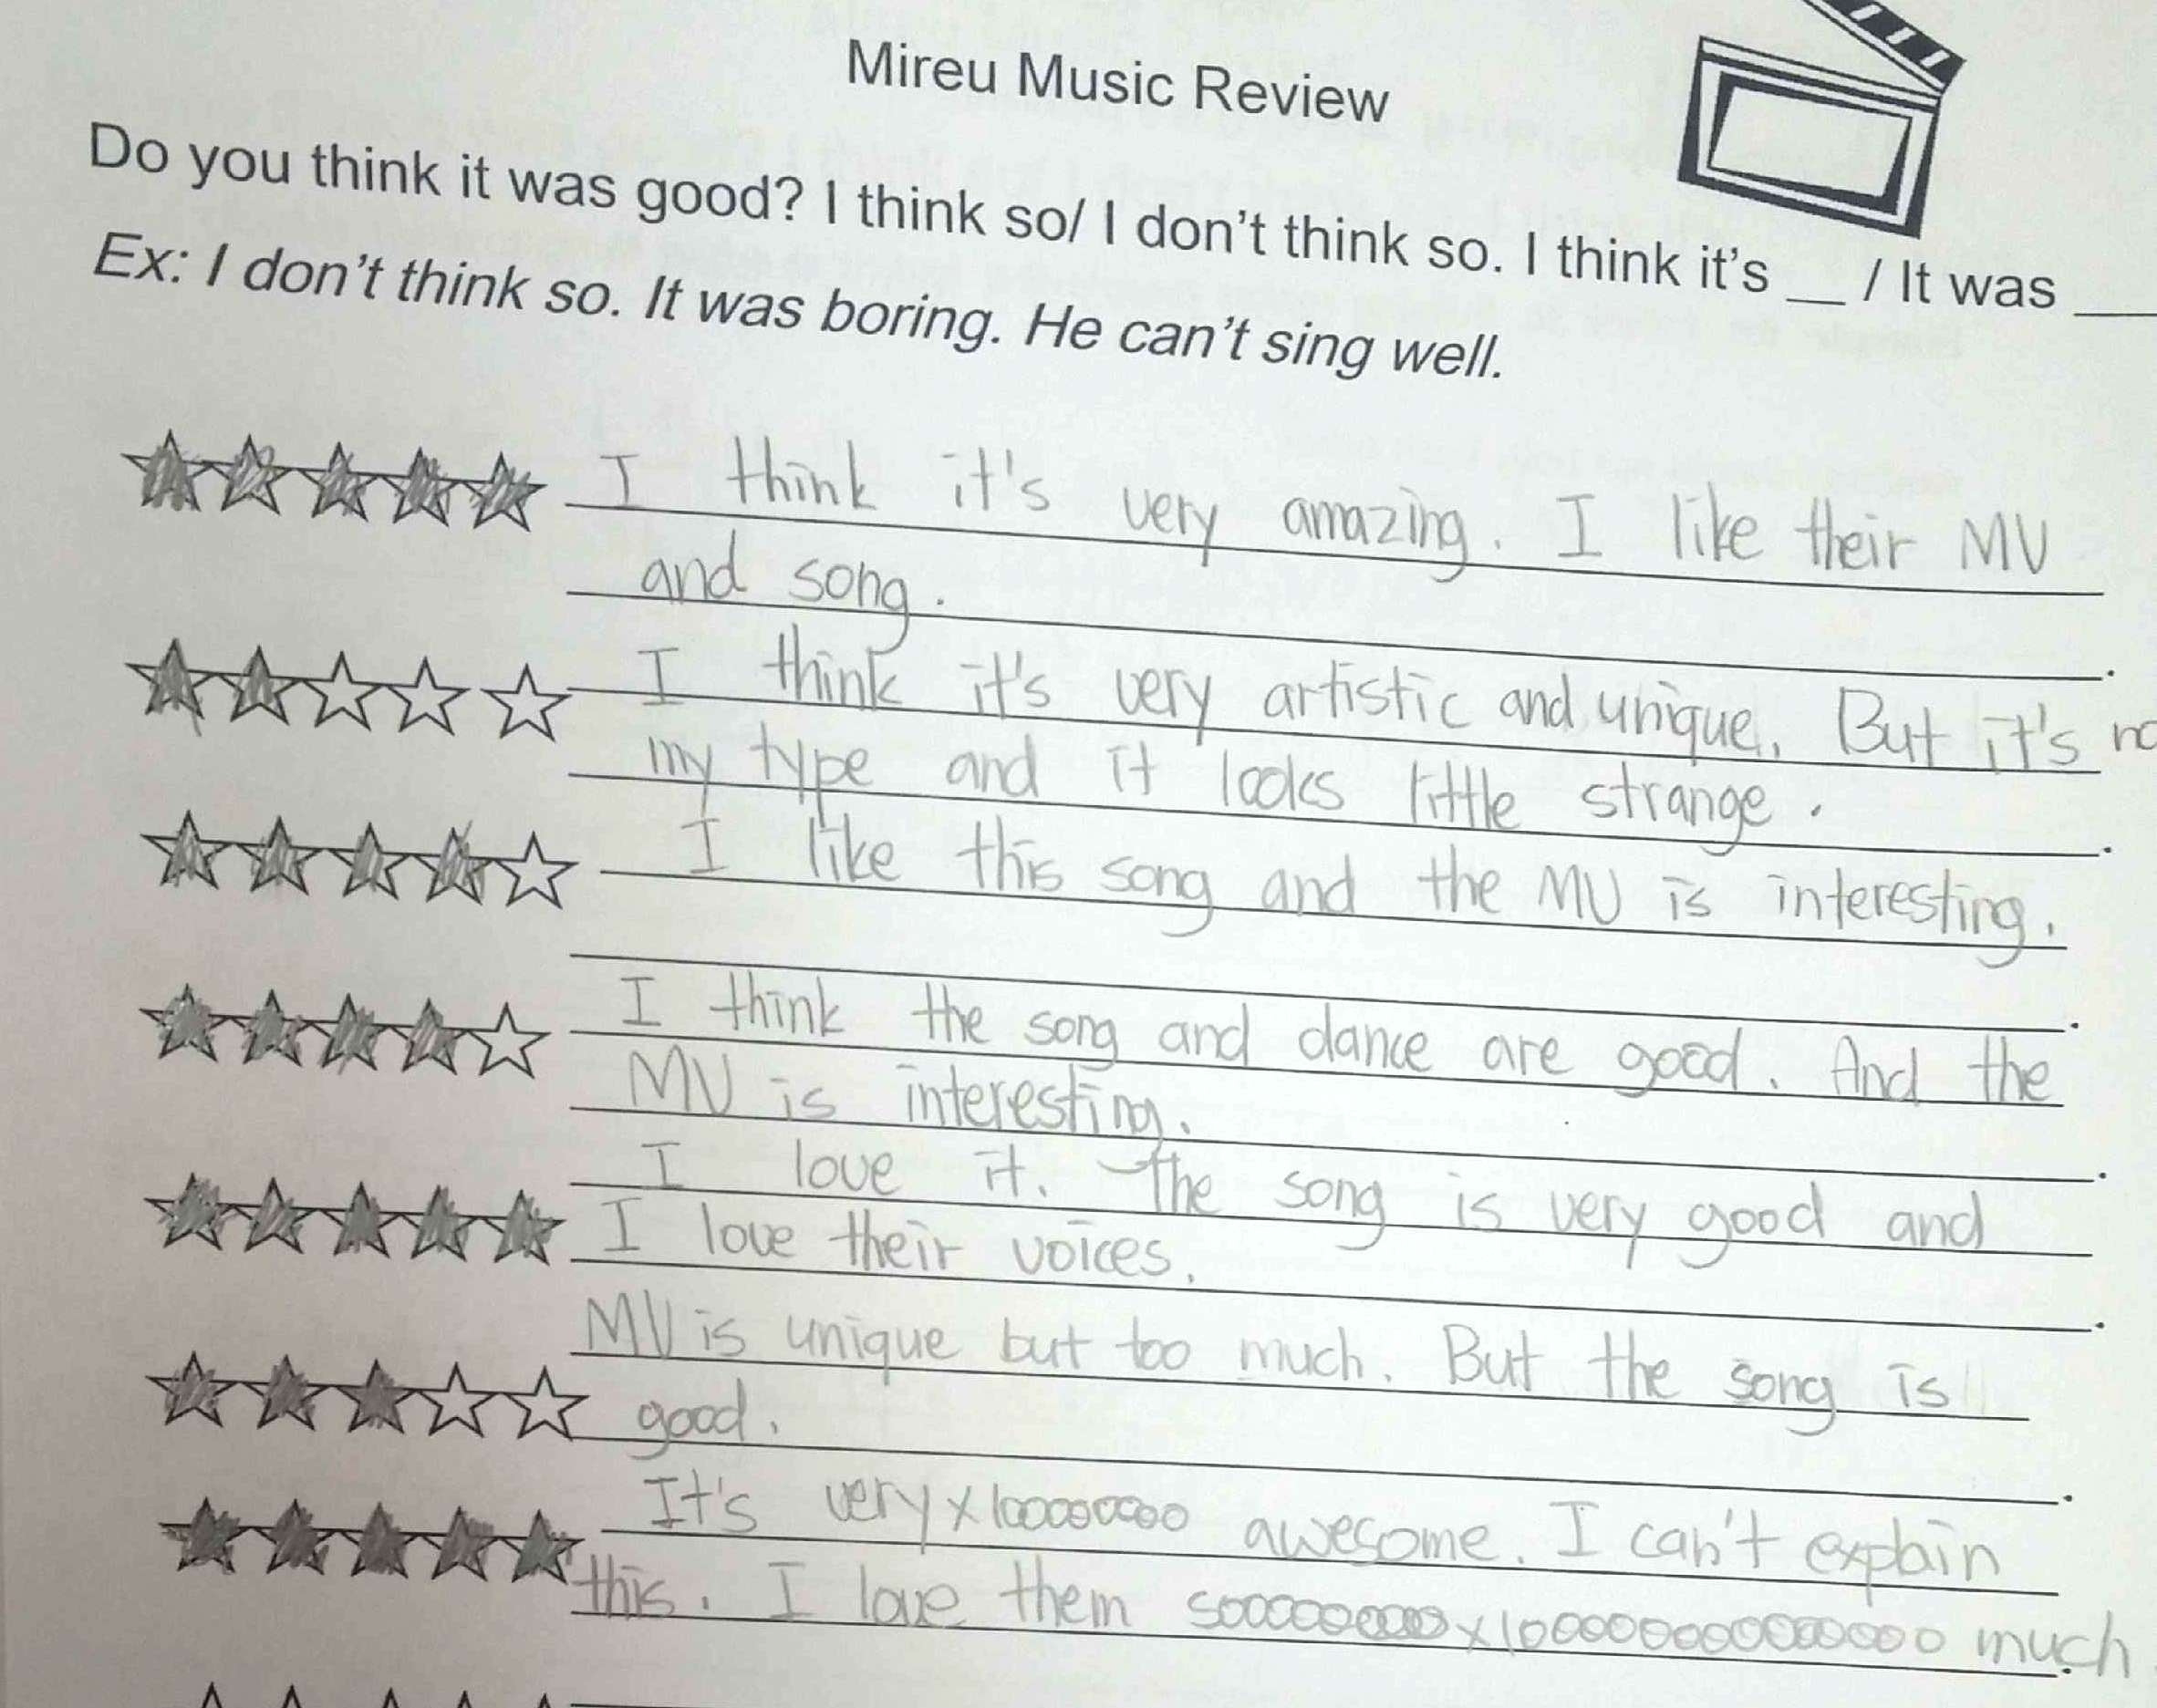 Mireu Music Review
Do you think it was good? I think so/ I don't think so. I think it's __ / It was ___
Ex: I don't think so. It was boring. He can't sing well.
I think it's very amazing. I like their MV
and song.
I think it's very artistic and unique. But it's no
my type and it looks little strange.
I like this song and the MV is interesting.
I think the song and dance are good. And the
MV is interesting.
I love it. The song is very good and
I love their voices.
MV is unique but too much. But the song is
good.
It's very x 100000000 awesome. I can't explain
this. I love them sooooooooo x 10000000000000000 much.